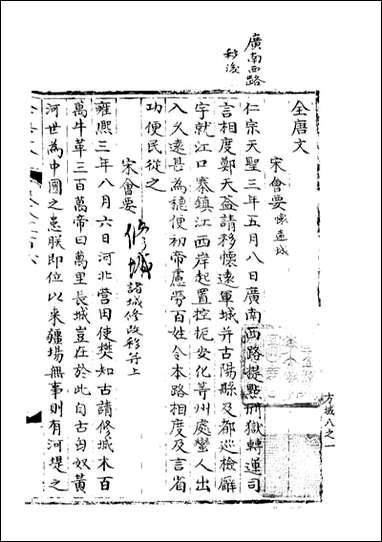 廣南西路
移後
全唐文
宋會要 懷遠城
仁宗天聖三年五月八日廣南西路提點刑獄轉運司
言相度鄭天益請移懷遠軍城并古陽縣及都巡檢廨
宇就江口寨鎮江西岸起置控扼安化等州處蠻人出
入久遠甚為穩便初帝慮勞百姓令本路相度及言省
功便民從之
宋會要 修城 諸城修改移并上
雍熙三年八月六日河北營田使樊知古請修城木百
萬牛革三百萬帝曰萬里長城豈在於此自古匈奴黃
河世為中國之患朕即位以來疆場無事則有河堤之
方域八之一